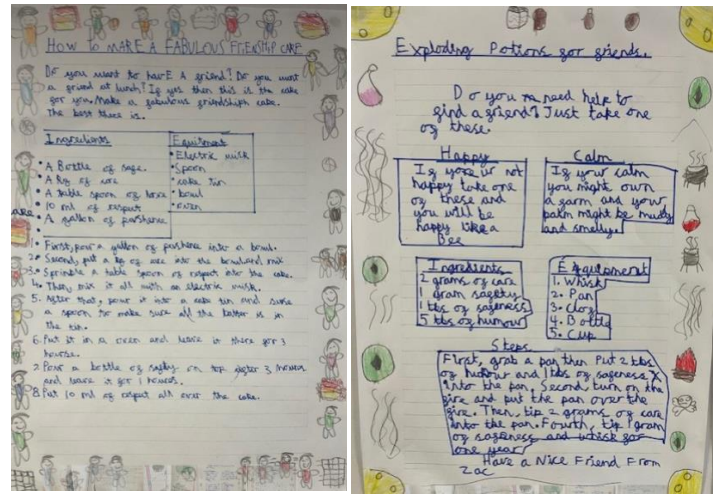 HOW TO MAKE A FABULOUS FRIENSHIP CAKE
Do you want to havE A friend? Do you want
a friend at lunch? If yes then this is the cake
for you. Make a fabulous friendship cake.
The best there is.
Ingredients
• A Bottle of safe.
• A Kg of care
• A table spoon of
• 10 ml of respect
• A gallon of parshence
Equitment
• Electric wisk
• Spoon
• cake tin
• bowl
• oven
1. First, pour a gallon of parshence into a bowl.
2. Second, put a kg of care into the bowl and mix
3. Sprinkle a table spoon of respect into the cake.
4. Then mix it all with an electric wisk.
5. After that, pour it into a cake tin and
a spoon to make sure all the batter is in
the tin.
6. Put it in a oven and leave it there for 3
hourse.
7. Pour a bottle of on top after 3 hours
and leave it for 1 hours.
8. Put 10 ml of respect all over the cake.
Exploding Potions for friends.
Do you need help to
find a friend? Just take one
of these.
Happy
If your not
happy take one
of these and
you will be
happy like a
Bee
Calm
If your calm
you might own
a farm and your
palm might be mudy
and smelly.
Ingredients
2 grams of care
1 gram safety
1 tbs of safeness
5 tbs of humour
EAquipment
1. Whisk
2. Pan
3. Clog
4. Bottle
5. Cup
Steps
First, grab a pan then Put 2 tbs
of humour and 1 tbs of safeness
into the pan. Second, turn on the
fire and put the pan over the
fire. Then, tip 2 grams of care
into the pan. Fourth, tip 1 gram
of safeness and whisk for
one year
Have a Nice Friend From
Zac